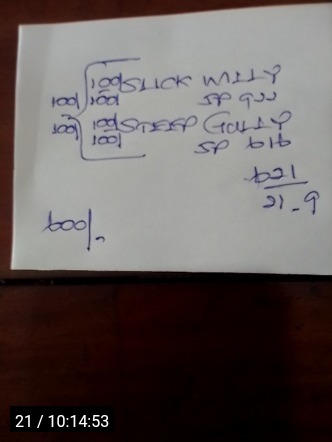 100/ SLICK WILLY
100/ 100/ SP 9JJ
100/ 100/ STEEP GULLY
100/ SP 616
621
21-9
600/-
21 / 10:14:53